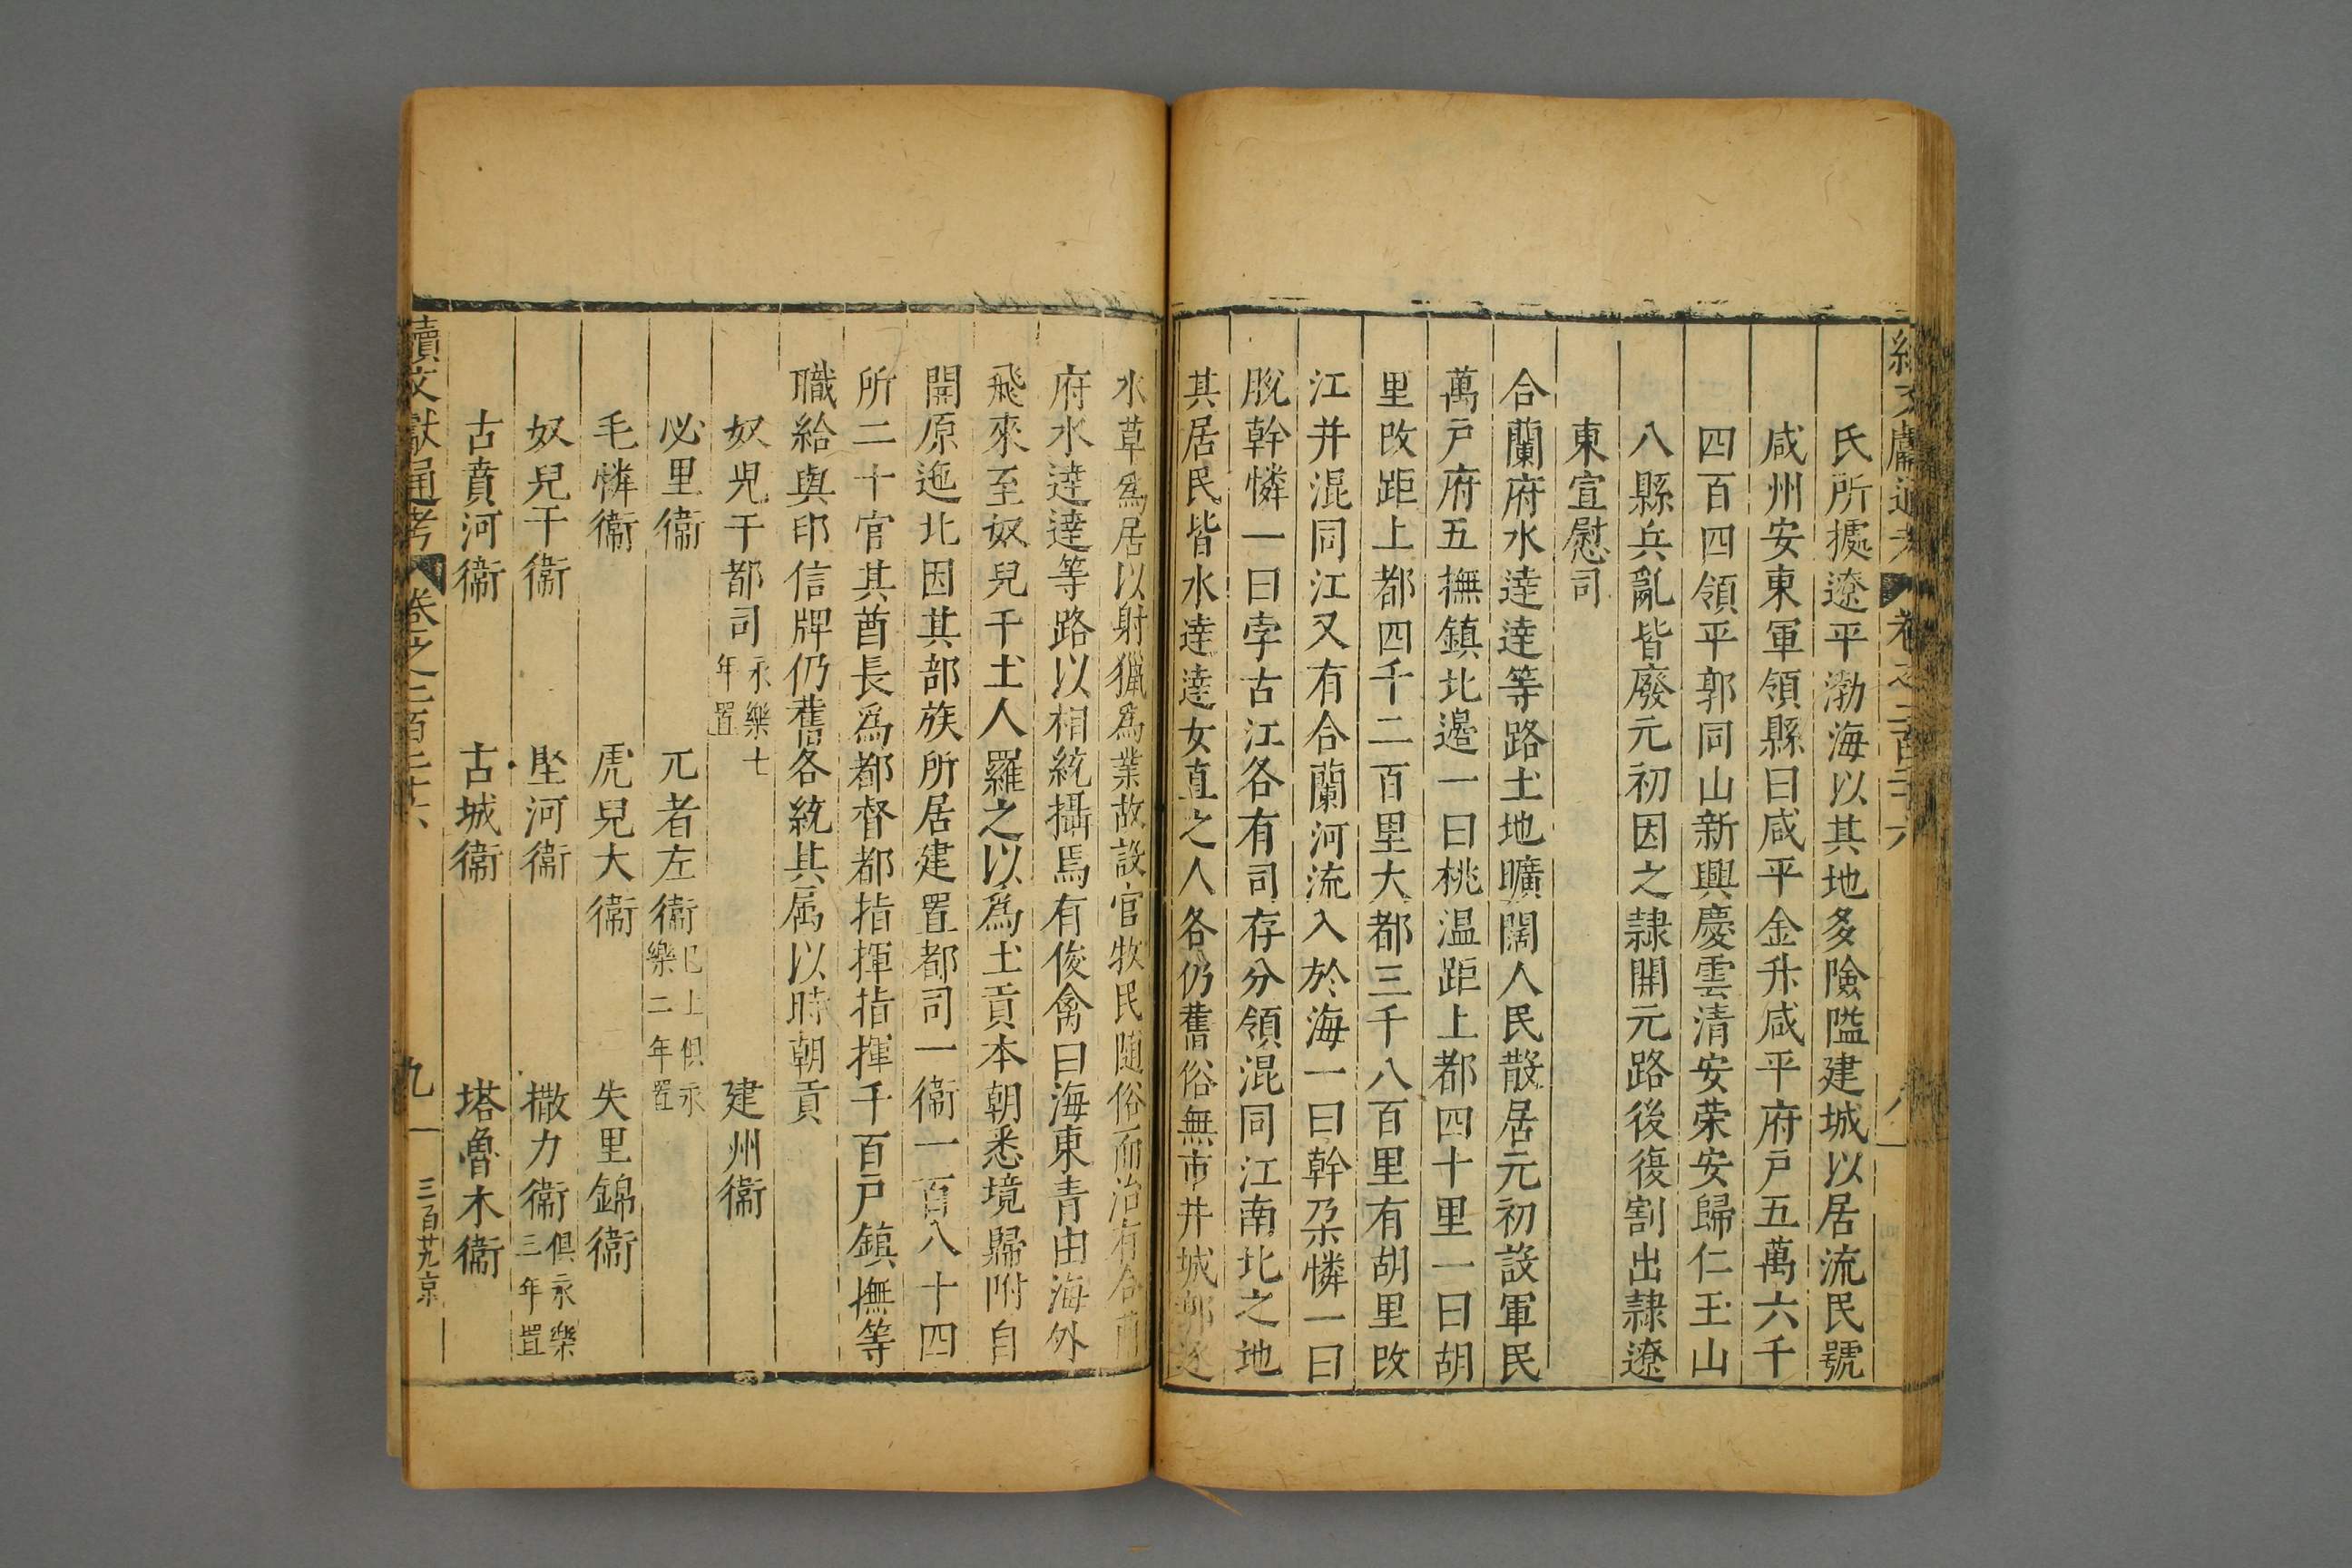 續文獻通考 卷之二百三十六 八
氏所據遼平渤海以其地多險隘建城以居流民號
咸州安東軍領縣曰咸平金升咸平府戶五萬六千
四百四領平郭同山新興慶雲清安荣安歸仁玉山
八縣兵亂皆廢元初因之隷開元路後復割出隷遼
東宣慰司
合蘭府水達達等路土地曠闊人民散居元初設軍民
萬戶府五撫鎮北邊一曰桃温距上都四千里一曰胡
里改距上都四千二百里大都三千八百里有胡里改
江并混同江又有合蘭河流入於海一曰斡朶憐一曰
脫斡憐一曰孛古江各有司存分領混同江南北之地
其居民皆水達達女直之人各仍舊俗無市井城郭逐
水草爲居以射獵爲業故設官牧民随俗而治有合蘭
府水達達等路以相統攝焉有俊禽曰海東青由海外
飛來至奴兒干土人羅之以爲土貢本朝悉境歸附自
開原迤北因其部族所居建置都司一衞一百八十四
所二十官其酋長爲都督都指揮指揮千百戶鎮撫等
職給與印信牌仍舊各統其属以時朝貢
奴兒干都司 永樂七年置 建州衞
必里衞 兀者左衞 已上俱永樂二年置
毛憐衞 虎兒大衞 失里錦衞
奴兒干衞 坚河衞 撒力衞 俱永樂三年置
古賁河衞 古城衞 塔魯木衞
續文獻通考 卷之二百三十六 九 三百廿九 京